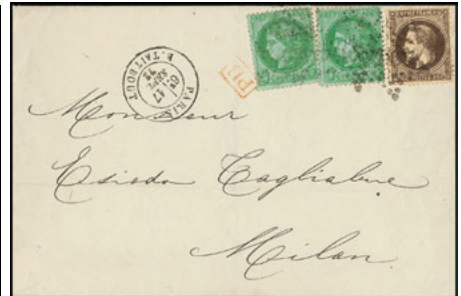 PARIS
R. TAITBOUT
6E
17
SEPT.
71
PD
Monsieur
Esiodo Tagliabue
Milan